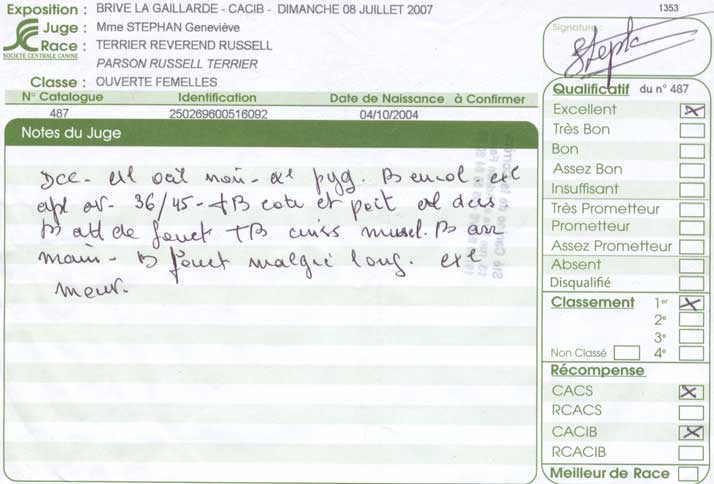 Exposition : BRIVE LA GAILLARDE - CACIB - DIMANCHE 08 JUILLET 2007
1353
Juge : Mme STEPHAN Geneviève
Race : TERRIER REVEREND RUSSELL
PARSON RUSSELL TERRIER
SOCIÉTÉ CENTRALE CANINE
Classe : OUVERTE FEMELLES
N° Catalogue Identification Date de Naissance à Confirmer
487 250269600516092 04/10/2004
Notes du Juge
Dce - oeil noir - pyg. B encol. exl
apl av. 36/45 - TB cotu et poit dos
B att de fouet TB cuiss muscl. B arr
main - B fouet malgré long. exl
Signature :
Qualificatif du n° 487
Excellent X
Très Bon
Bon
Assez Bon
Insuffisant
Très Prometteur
Prometteur
Assez Prometteur
Absent
Disqualifié
Classement 1er X
2e
3e
Non Classé 4e
Récompense
CACS X
RCACS
CACIB X
RCACIB
Meilleur de Race